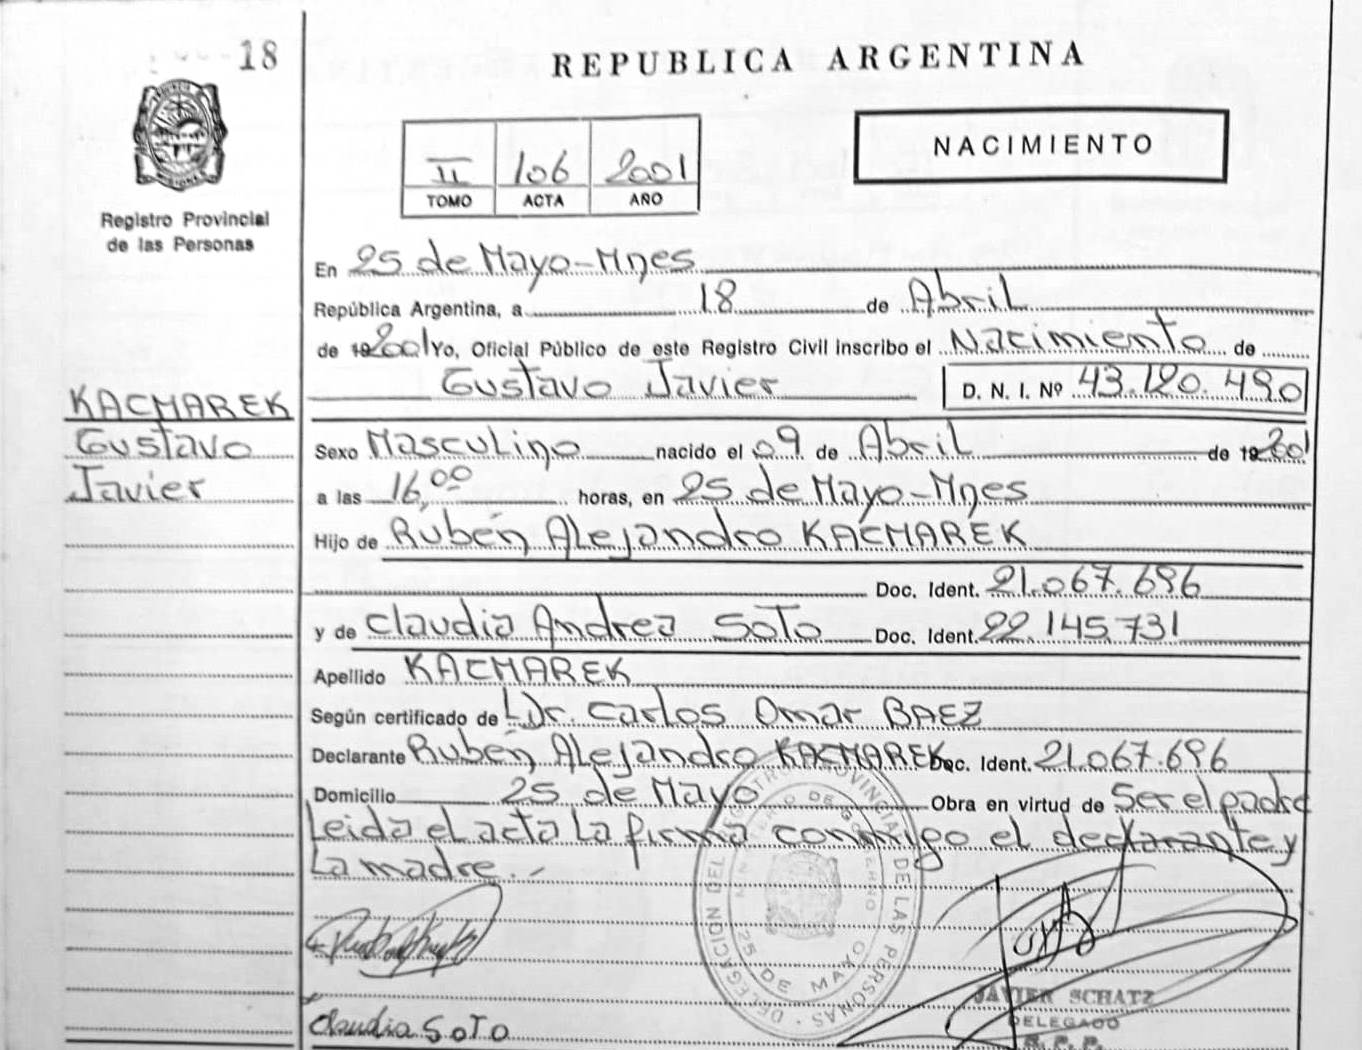 18
REPUBLICA ARGENTINA
NACIMIENTO
II 106 2001
TOMO ACTA AÑO
Registro Provincial
de las Personas
En 25 de Mayo-Mnes
República Argentina, a 18 de Abril
de 192001 Yo, Oficial Público de este Registro Civil inscribo el Nacimiento de
Gustavo Javier D. N. I. Nº 43.120.490
KACMAREK
Gustavo
Javier
Sexo Masculino nacido el 09 de Abril de 192001
a las 16,00 horas, en 25 de Mayo-Mnes
Hijo de Rubén Alejandro KACMAREK
Doc. Ident. 21.067.696
y de Claudia Andrea SOTO Doc. Ident. 22.145.731
Apellido KACMAREK
Según certificado de Dr. Carlos Omar BAEZ
Declarante Rubén Alejandro KACMAREK Doc. Ident. 21.067.696
Domicilio 25 de Mayo Obra en virtud de Ser el padre
Leida el acta la firma conmigo el declarante y
La madre.-
DELEGACION DEL REGISTRO PROVINCIAL DE LAS PERSONAS
MINISTERIO DE GOBIERNO
25 DE MAYO
JAVIER SCHATZ
DELEGADO
R. P. P.
Claudia SOTO